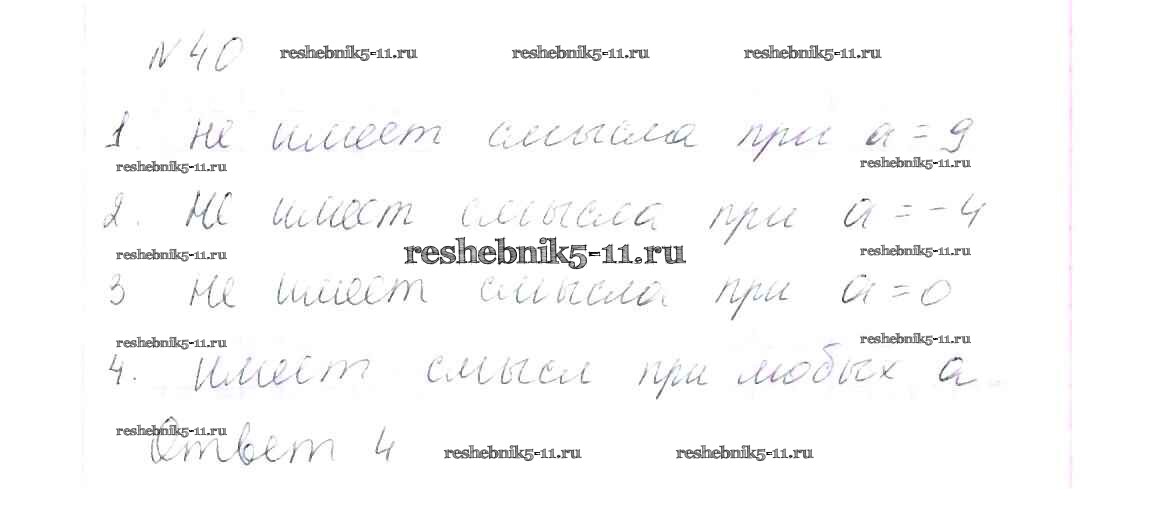 № 40 reshebnik5-11.ru reshebnik5-11.ru reshebnik5-11.ru
1 не имеет смысла при a = 9
reshebnik5-11.ru reshebnik5-11.ru
2. не имеет смысла при a = -4
reshebnik5-11.ru reshebnik5-11.ru reshebnik5-11.ru
3 не имеет смысла при a = 0
reshebnik5-11.ru reshebnik5-11.ru
4. имеет смысл при любых a
reshebnik5-11.ru
Ответ 4 reshebnik5-11.ru reshebnik5-11.ru